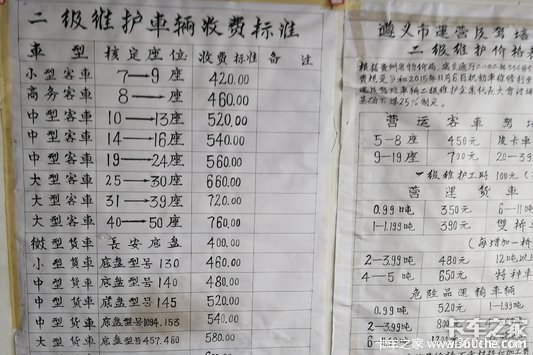 二级维护车辆收费标准
車型 核定座位 收费标准 备注
小型客車 7—9座 420.00
商务客車 8— 460.00
中型客車 10—13座 520.00
中型客車 14—16座 540.00
中型客車 19—24座 560.00
大型客車 25—30座 660.00
大型客車 31—39座 720.00
大型客車 40—50座 760.00
微型貨車 長安底盘 400.00
小型貨車 底盘型号130 460.00
中型貨車 底盘型号140 480.00
中型貨車 底盘型号145 520.00
中型貨車 底盘型号1094.153 540.00
大型貨車 底盘型号457.460 580.00
遵义市運营及驾培
二级维护价格
营运客車 驾培
5—8座 450元 皮卡車
9—19座 700元 20—39
一级维护工時 100元
营運貨車
0.99吨 350元 6—11吨
1—1.199吨 390元 雙桥
(每增加一桥
2—3.99吨 480元 12吨以
4—5吨 650元 特种車
危险品運输車辆
0.99吨 520元 1—1.99吨
2—3.99吨 800元
卡车之家
www.360che.com